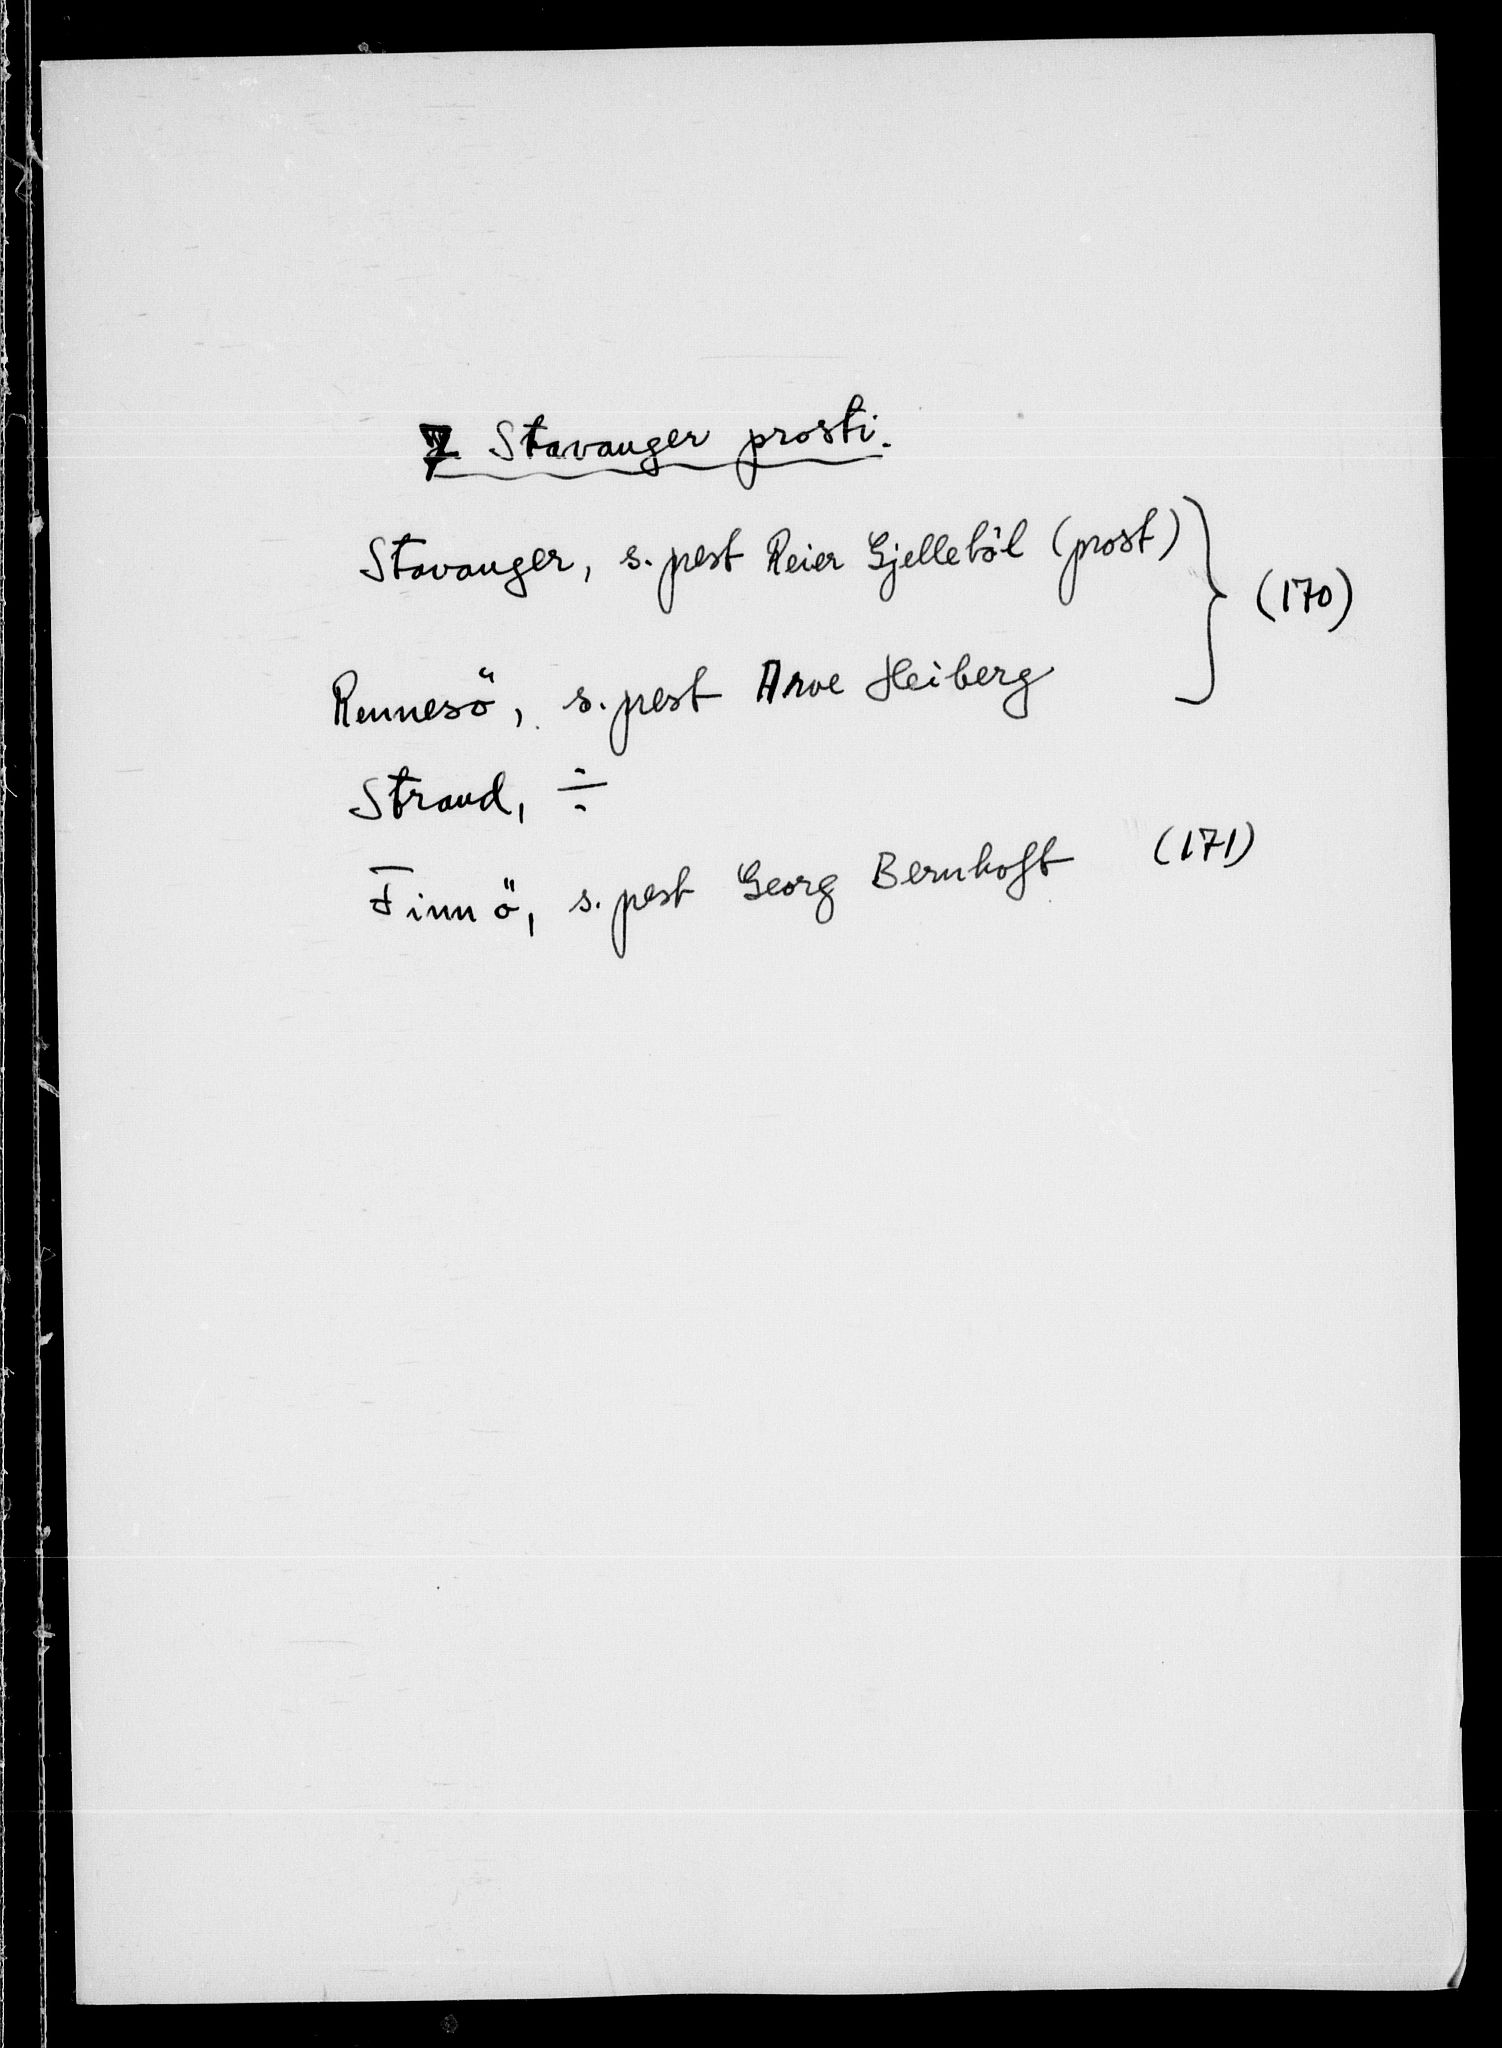 7 Stavanger prosti.
Stavanger, s. pest Reier Gjelleböl (prost)
(170)
Rennesö, s. pest Arve Heiberg
Strand, ÷
Finnö, s. pest Georg Bernhoft (171)